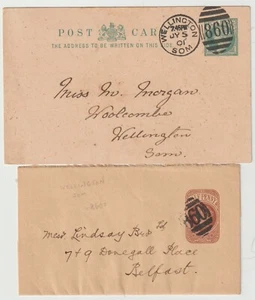 POST CARD
THE ADDRESS TO BE WRITTEN ON THIS SIDE
WELLINGTON
JY 5
01
SOM
860
Miss M. Morgan
Woolcombe
Wellington
Som.
Mess. Lindsay Bros Ld
7 & 9 Donegall Place
Belfast.
60